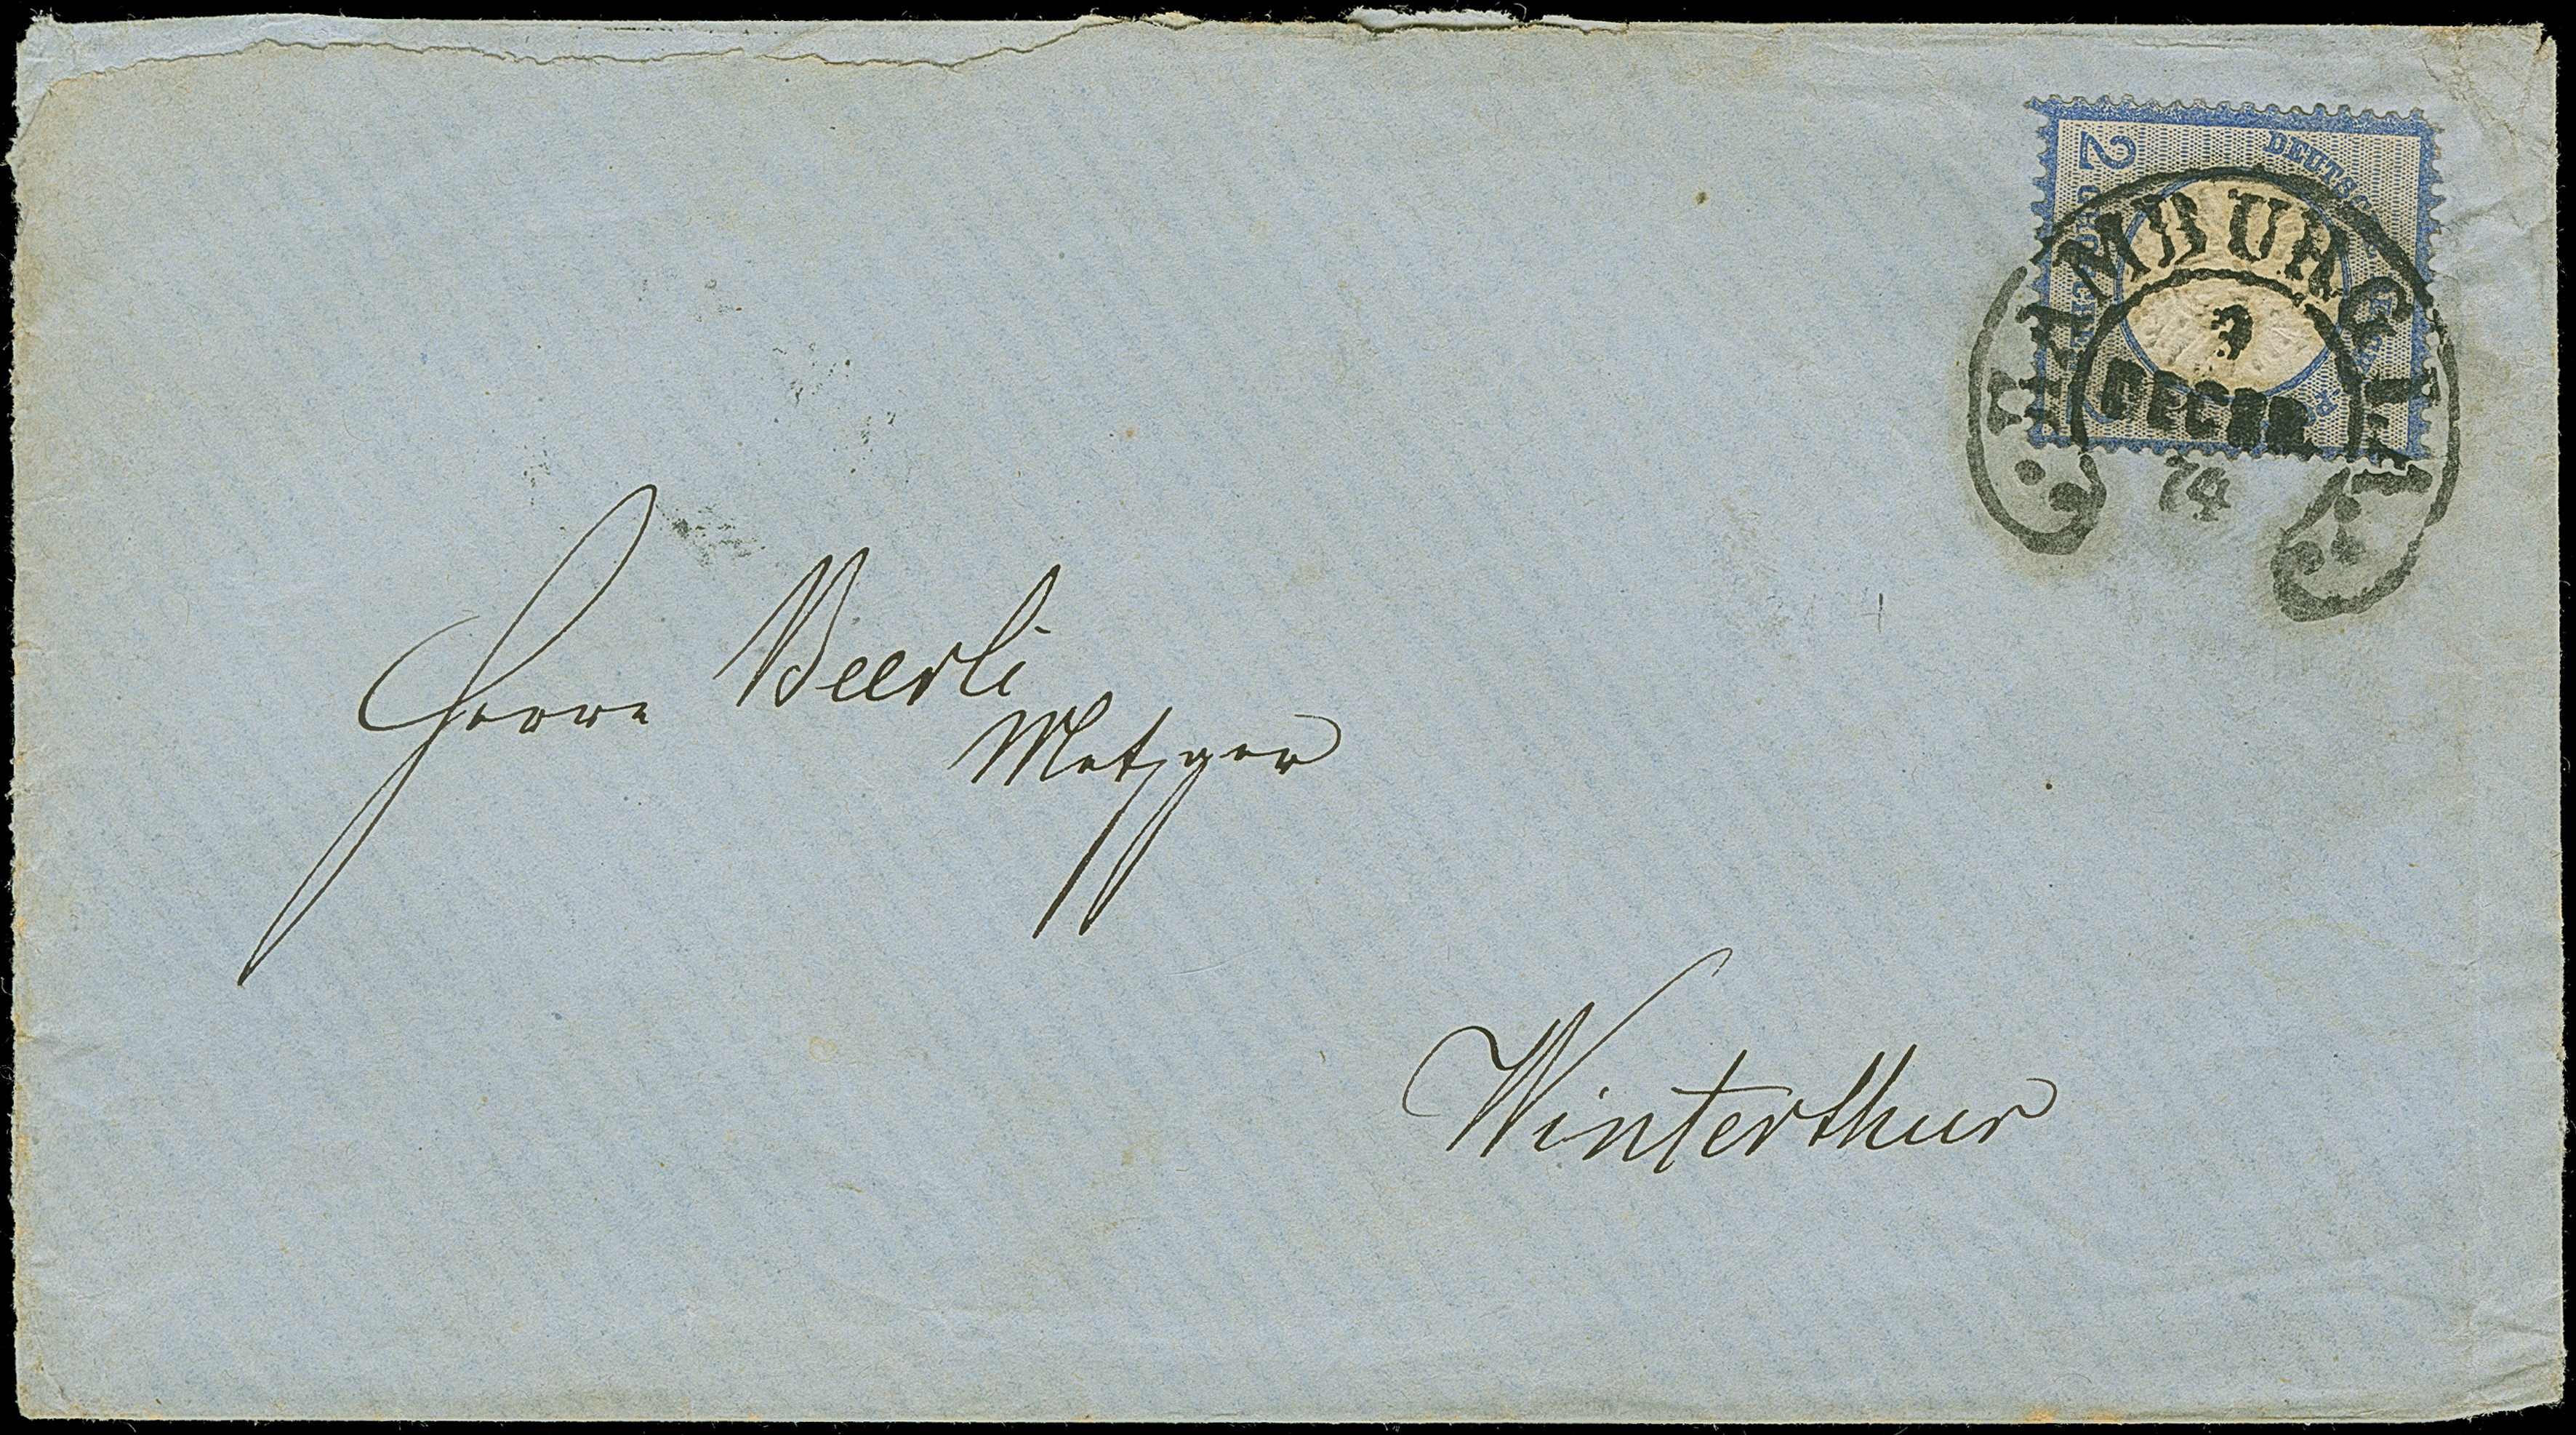 2
DEUTSC
HAMBURG I.A.
9
DECBR.
74
Herrn Beerli
Metzger
Winterthur